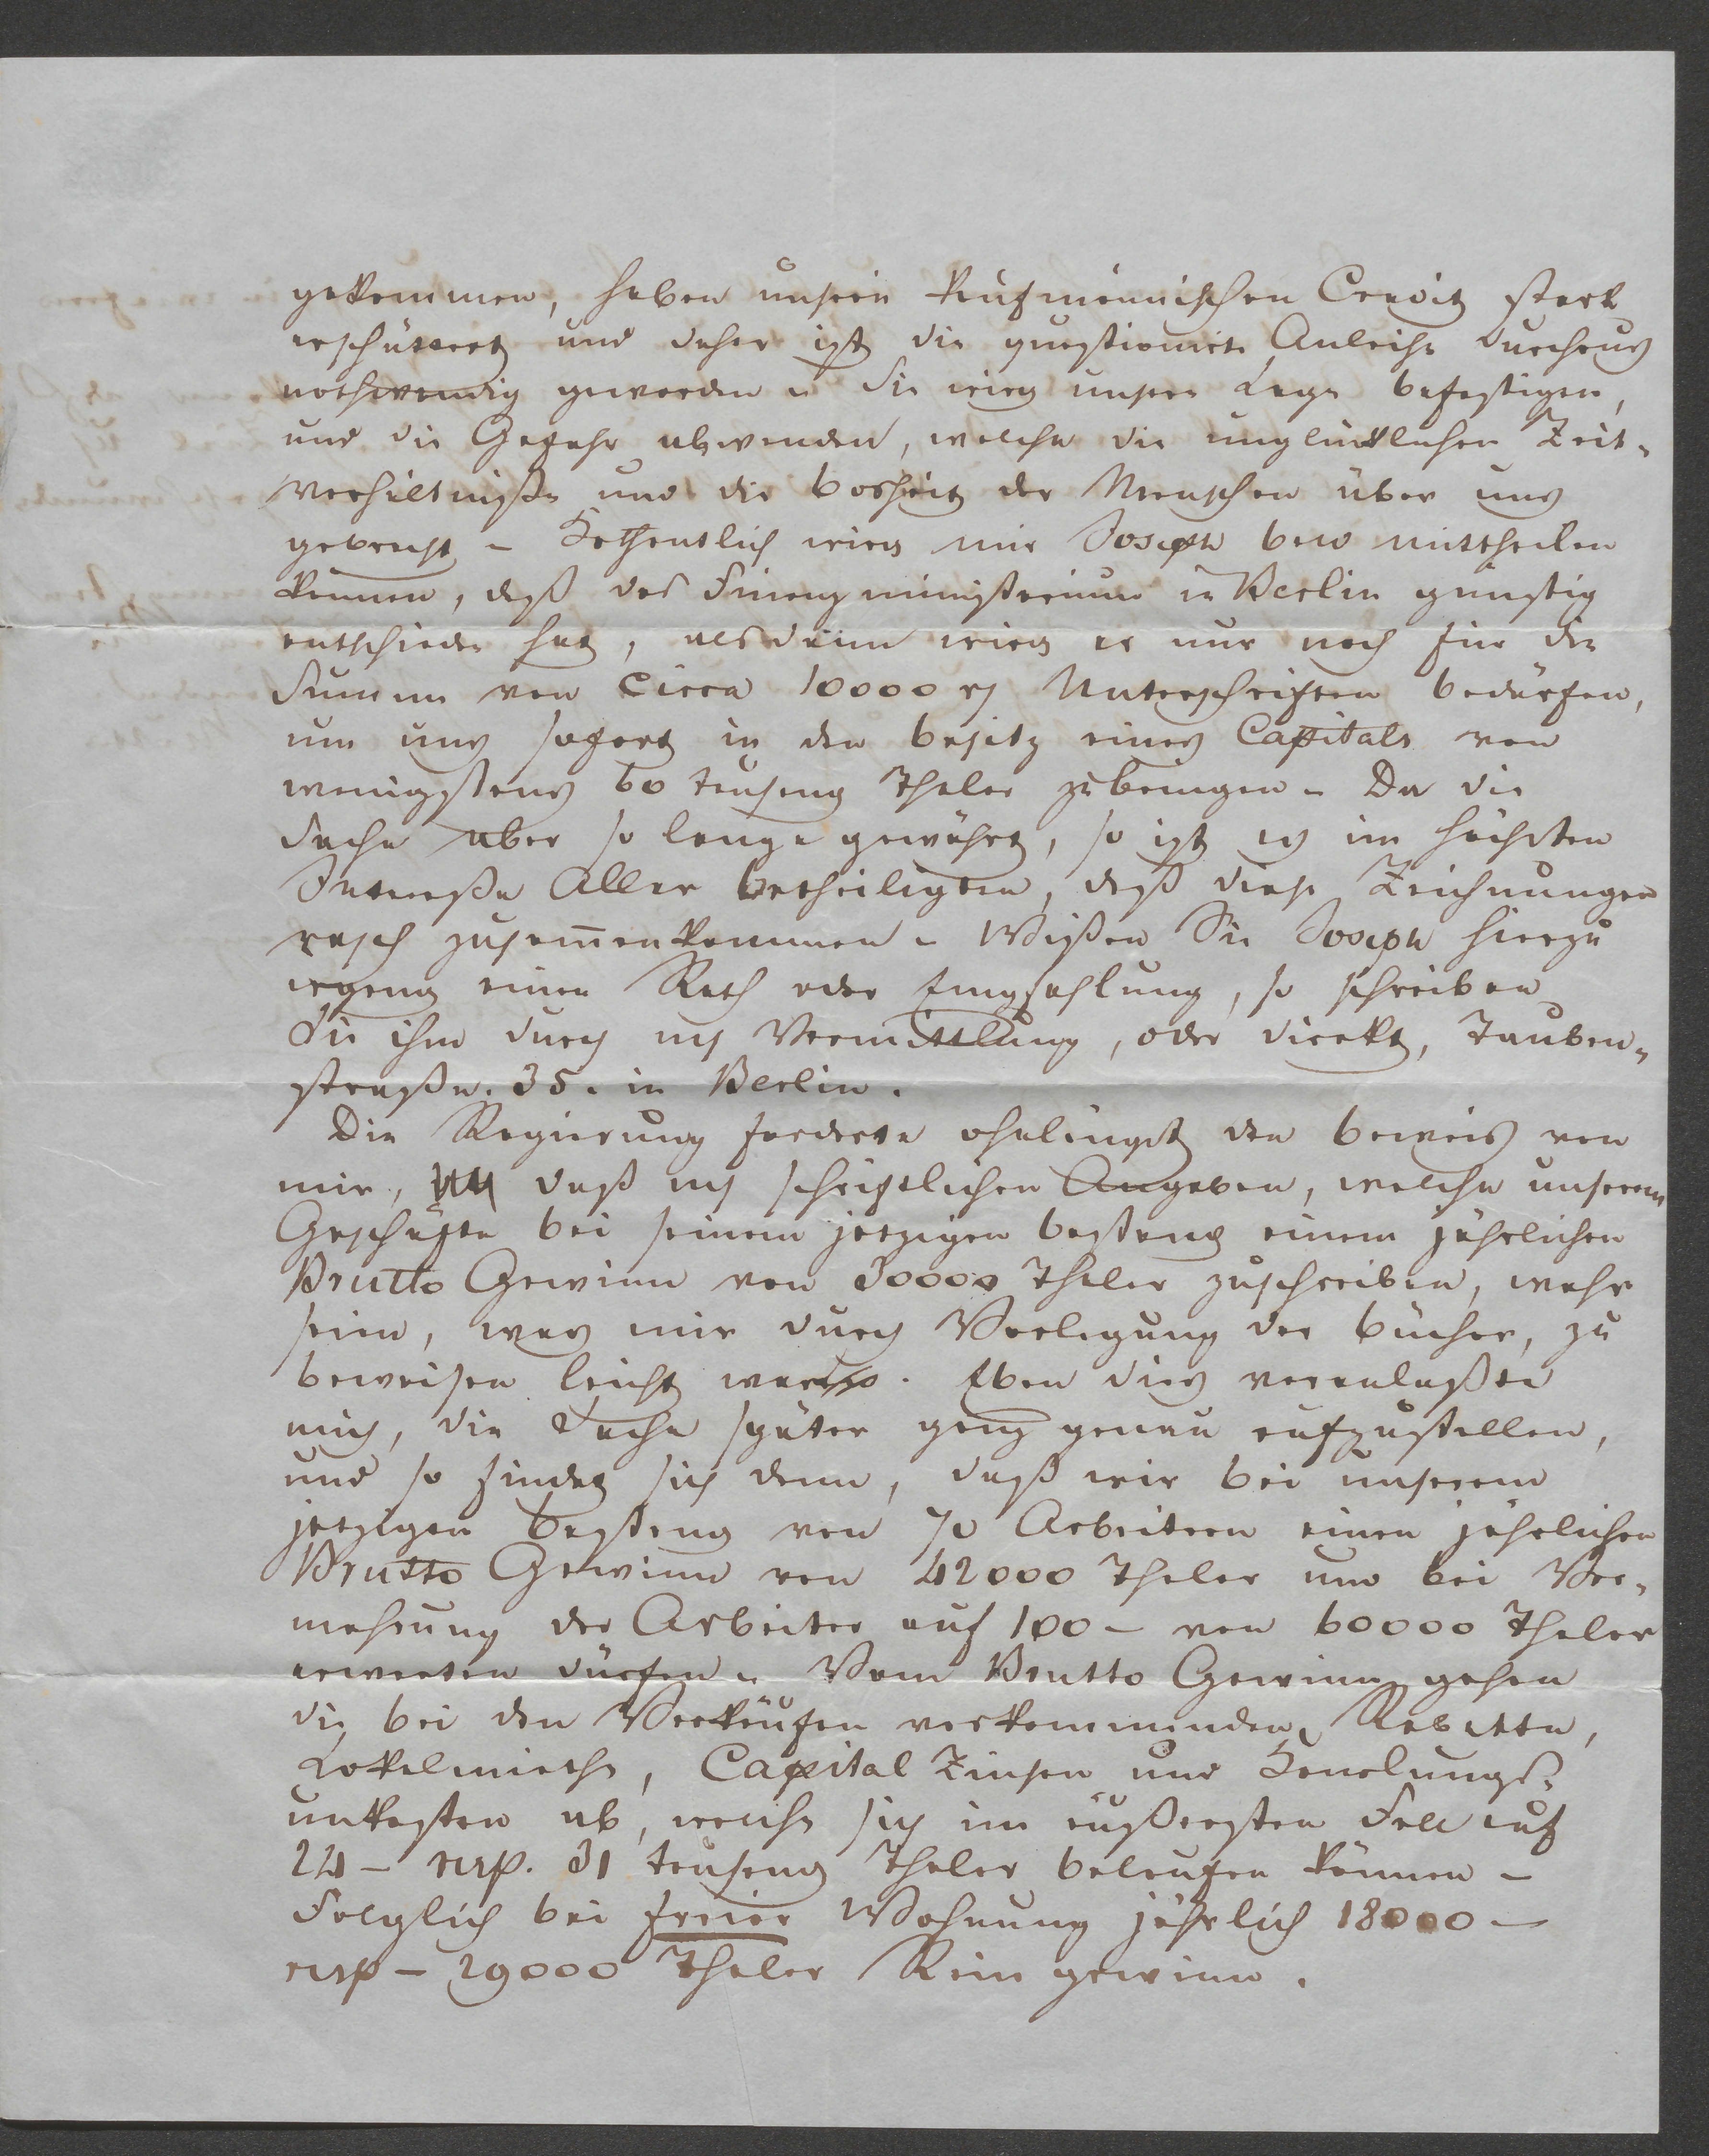 gekommen, haben unsern kaufmännischen Credit stark
erschüttert und daher ist die questionirte Anleihe durchaus
nothwendig geworden u. Sie wird unsere Lage befestigen,
und die Gefahr abwenden, welche die unglücklichen Zeit-
verhältniße und die Bosheit der Menschen über uns
gebracht – Hoffentlich wird mir Joseph bald mittheilen
können, daß das Finanzministerium in Berlin günstig
entschieden hat, alsdann wird er nur noch für die
Summe von circa 10000 rt Unterschriften bedürfen,
um uns sofort in den Besitz eines Capitals von
wenigstens 60 tausend Thaler zu bringen – Da die
Sache aber so lange gewährt, so ist es im höchsten
Intereße Aller Betheiligten, daß diese Zeichnungen
rasch zusam̅enkommen – Wißen Sie Joseph hierzu
irgend einen Rath oder Empfehlung, so schreiben
Sie ihm durch m Vermittlung, oder direkt, Tauben-
straße. 35. in Berlin.
Die Regierung forderte ohnlängst den Beweis von
mir, daß m schriftlichen Angaben, welche unserem
Geschäfte bei seinem jetzigen Bestand einem jährlichen
Brutto Gewinn von 30000 Thaler zuschreiben, wahr
seien, was mir durch Vorlegung der Bücher, zu
beweisen leicht war. Eben dies veranlaßte
mich, die Sache später ganz genau aufzustellen,
und so findet sich denn, daß wir bei unserem
jetzigen Bestand von 70 Arbeitern einen jährlichen
Brutto Gewinn von 42000 Thaler und bei Ver-
mehrung der Arbeiter auf 100 – von 60000 Thaler
erwarten dürfen – Vom Brutto Gewinn gehen
die bei den Verkäufen vorkommenden Rabatte,
Lokalmiethe, Capital Zinsen und Handlungs-
unkosten ab, welche sich im äußersten Fall auf
24 – resp. 31 tausend Thaler belaufen können –
Folglich bei freier Wohnung jährlich 18000 –
resp – 29000 Thaler Rein gewinn.